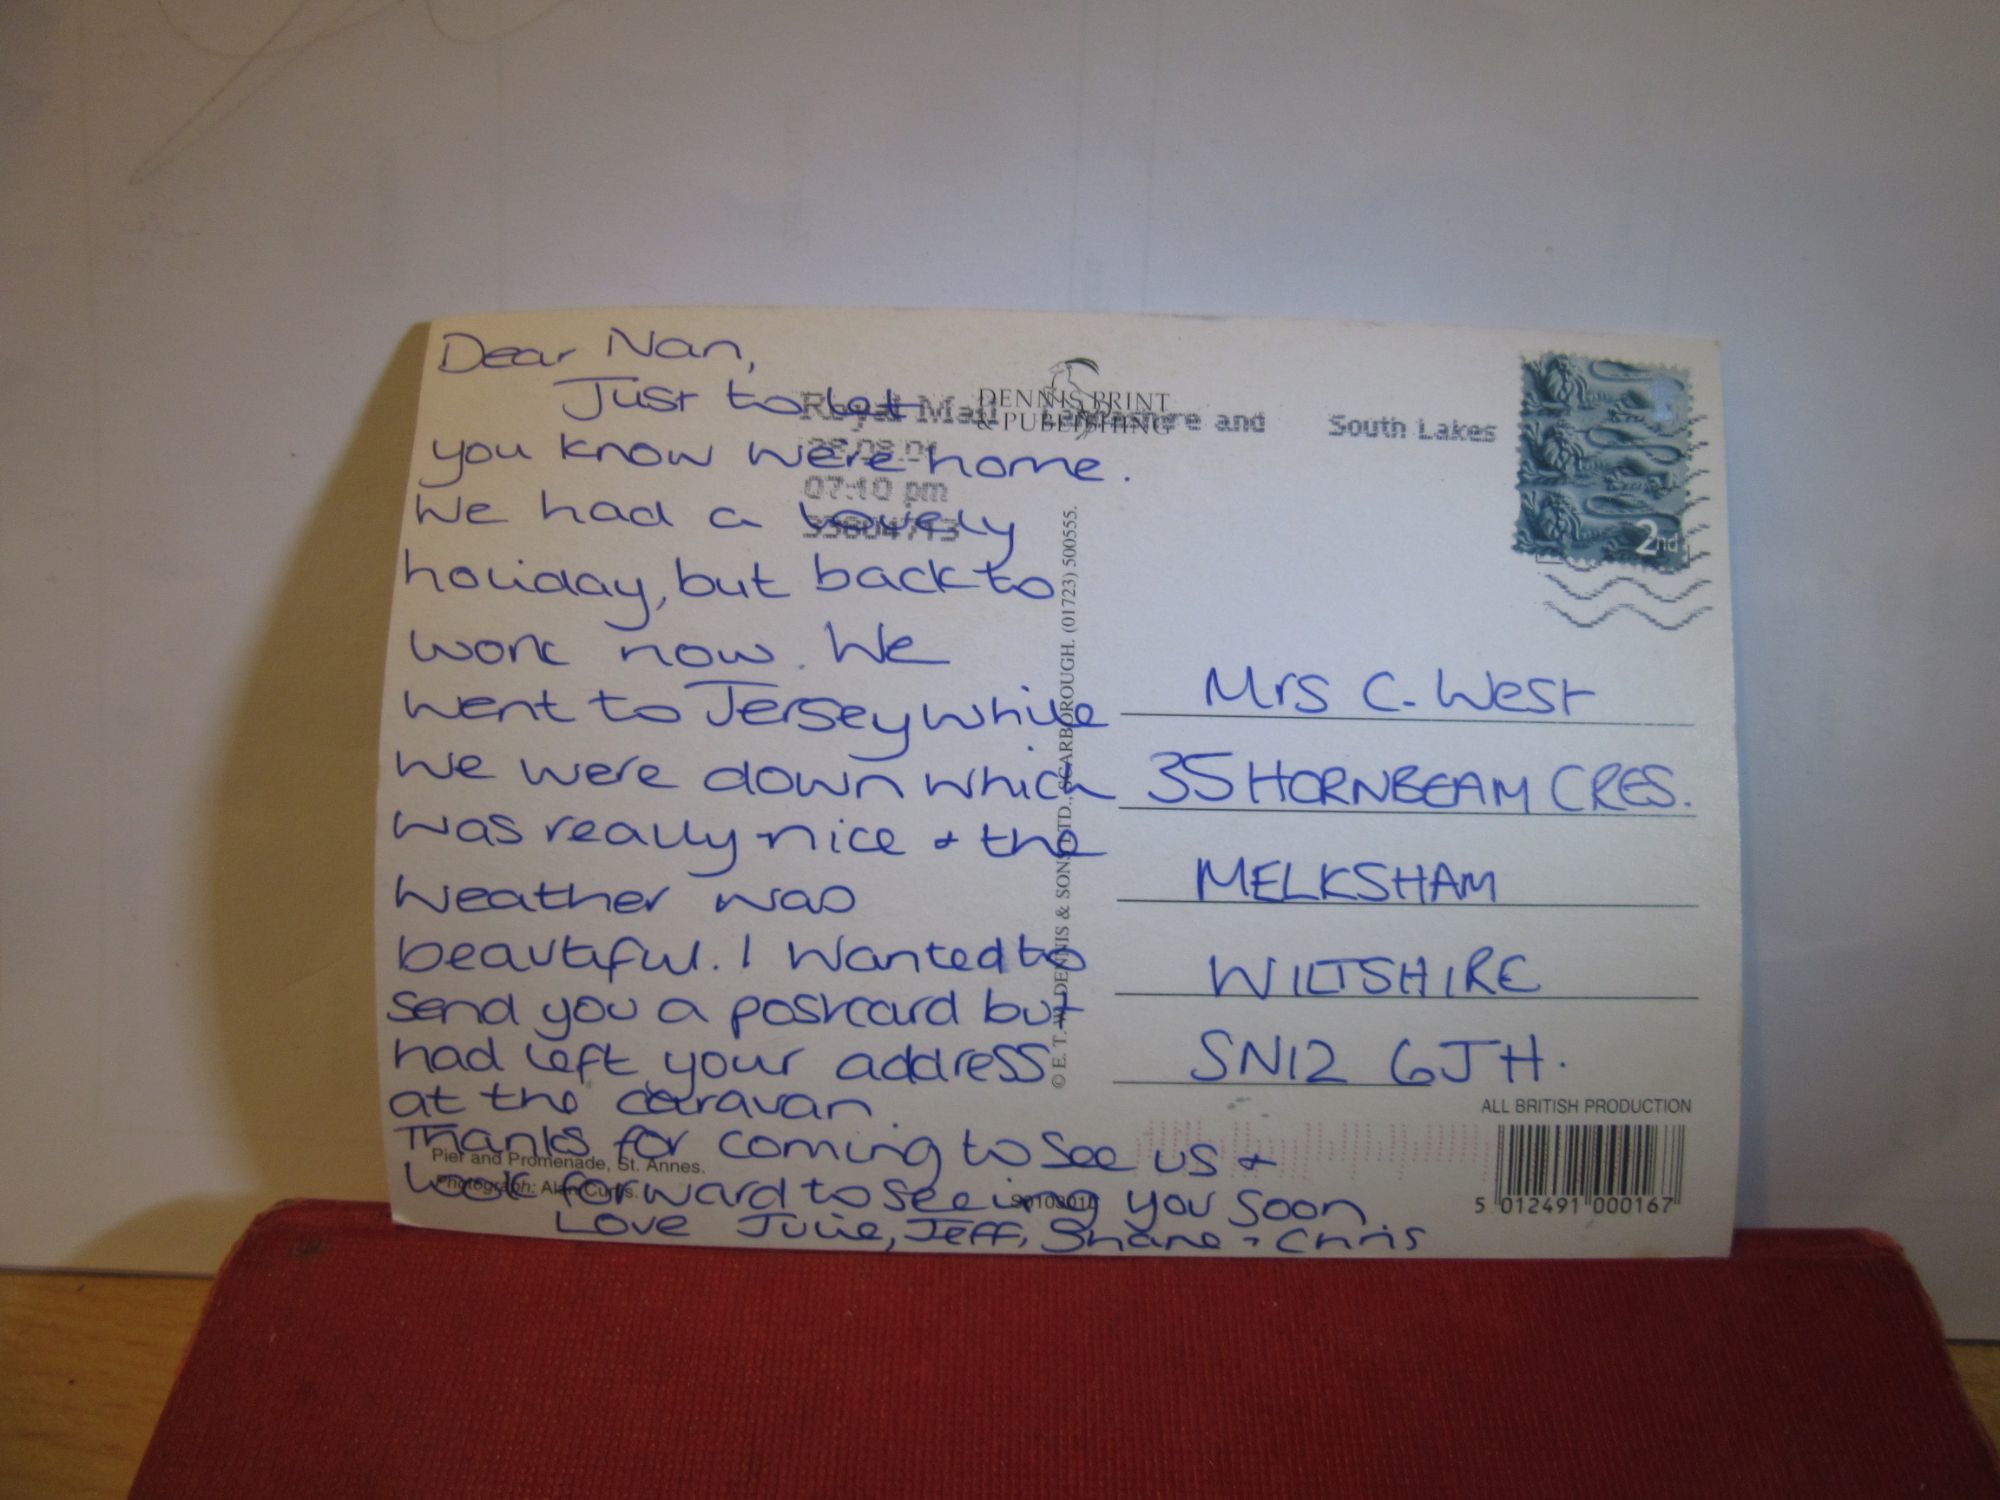 Dear Nan,
Just to let
you know were home.
We had a lovely
holiday, but back to
work now. We
went to Jersey while
we were down which
was really nice & the
weather was
beautiful. I wanted to
send you a postcard but
had left your address
at the caravan
Thanks for coming to see us &
look forward to seeing you soon.
Love Julie, Jeff, Shane & Chris
Pier and Promenade, St. Annes.
Photograph: Alan Curtis.
DENNIS PRINT
& PUBLISHING
Royal Mail Lancashire and South Lakes
07:10 pm
33604713
© E. T. W. DENNIS & SONS LTD., SCARBOROUGH. (01723) 500555.
2nd
Mrs C. West
35 HORNBEAM CRES.
MELKSHAM
WILTSHIRE
SN12 6JH.
ALL BRITISH PRODUCTION
5 012491 000167